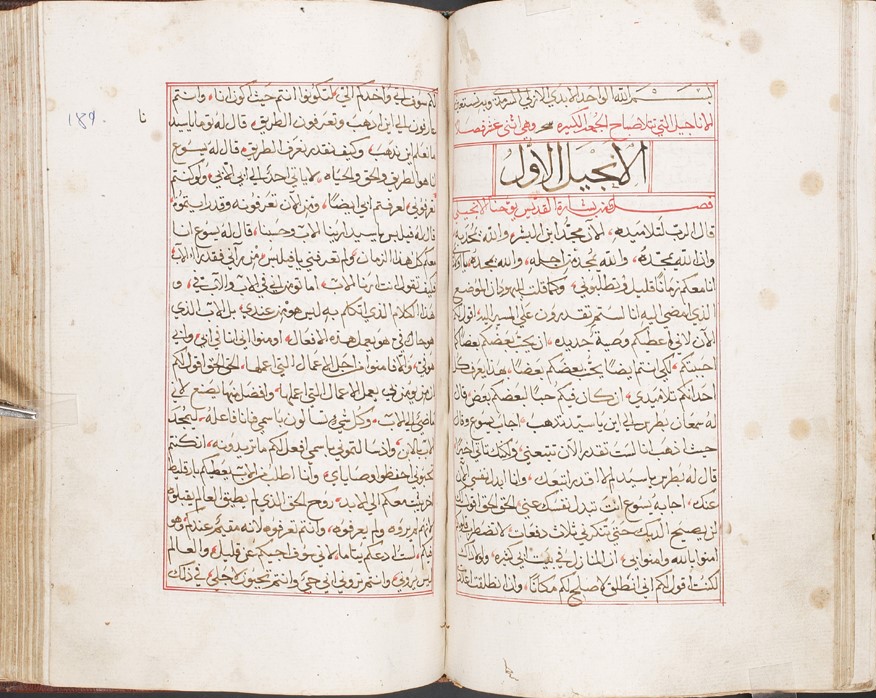 بسم الله الواحد الابدي الازلي السرمدي وبه نستعين
الاناجيل التي تتلا صباح الجمعة الكبيره وهي اثني عشر فصلا
الانجيل الاول
فصل من بشارة القديس يوحنا الانجيلي
قال الرب لتلاميذه، الان مجد ابن البشر، والله مجد به
وان الله مجد به، والله يمجده من اجله، والله يمجده
انا معكم زمانًا قليل، فتطلبوني، وكما قلت لليهود ان الموضع
الذي امضي اليه انا لستم تقدرون علي المسير اليه، اقول لكم
الان، لاني اعطيكم وصية جديده، ان يحب بعضكم بعضا، كما
احببتكم، لكي انتم ايضًا يحب بعضكم بعضًا، هذا يعرف كل
احد انكم تلاميذي، ان كان فيكم حبًا لبعضكم بعض، قال
له سمعان بطرس، الي اين يا سيد تذهب، اجاب يسوع وقال
حيث اذهب انا لست تقدر الان تتبعني، ولكنك تاتي اخيرًا
قال له بطرس يا سيد لم لا اقدر اتبعك، وانا ابدل نفسي
عنك، اجابه يسوع انت تبدل نفسك عني، الحق الحق اقول لك
لن يصيح الديك حتى تنكرني ثلاث دفعات، لا تضطرب قلوبكم
امنوا بالله وامنوا بي، ان المنازل في بيت ابي كثيره، ولولا ذلك
لكنت اقول لكم اني انطلق لاصلح لكم مكانًا، وان انطلقت واعددت
لكم سوف اتي واخدكم الي، لتكونوا انتم حيث اكون انا، وانتم
عارفون الي اين اذهب وتعرفون الطريق، قال له توما يا سيد
ما نعلم اين تذهب، وكيف نقدر نعرف الطريق، قال له يسوع
انا هو الطريق والحق والحياه، لا ياتي احد الي ابي الا بي، ولو كنتم
تعرفوني، لعرفتم ابي ايضًا، ومن الان تعرفونه وقد رايتموه
قال له فيلبس يا سيد ارينا الاب وحسبنا، قال له يسوع انا
معكم كل هذا الزمان، ولم تعرفني يا فيلبس، من رآني فقد راء الاب
كيف تقول انت ارنا الاب، اما تومن اني في الاب والاب في، و
هذا الكلام الذي اتكلم به ليس هو من عندي، بل الاب الذي
هو حال في هو يعمل هذه الافعال، امنوا اني انا في ابي، وابي
هو في، والا فامنوا من اجل الاعمال التي اعملها، الحق الحق اقول لكم
ان من يومن بي يعمل الاعمال التي اعملها، وافضل منها يصنع، لاني
ماضي الي الاب، وكل شي تسالون باسمي فانا فاعله، ليتمجد
الاب بالابن، واذ سالتموني باسمي افعل لكم ما تريدونه، ان كنتم
تحبوني احفظوا وصاياي، وانا اطلب من الاب يعطيكم بارقليط
اخر يثبت معكم الي الابد، روح الحق الذي لم يطيق العالم يقبلوه
لانهم لم يروه ولم يعرفوه، وانتم تعرفوه لانه مقيم عندكم وهو
فيكم، لست ادعكم يتاما، لاني سوف اجيكم عن قليل، والعالم
ليس يروني، وانتم تروني، اني حي، وانتم تحيون لاجلي، في ذلك
نا
189